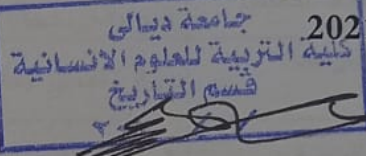 202
جامعة ديالى
كلية التربية للعلوم الانسانية
قسم التاريخ